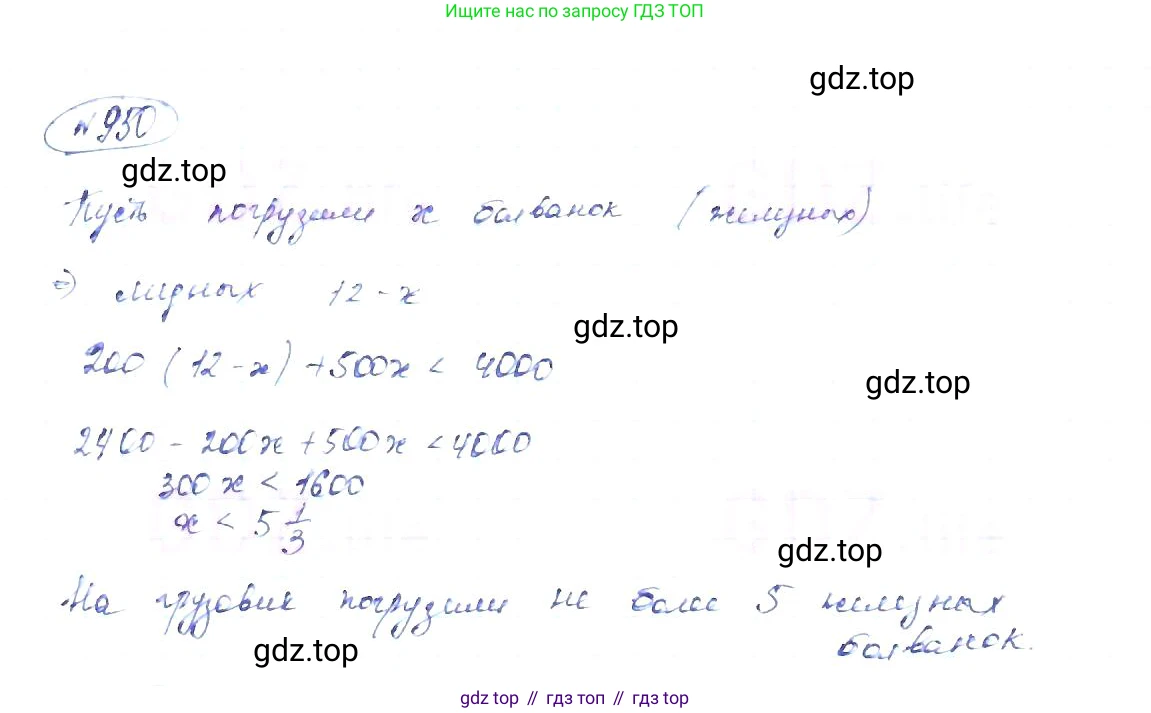 Ищите нас по запросу ГДЗ ТОП
gdz.top
№950
gdz.top
Пусть погрузили x болванок (железных)
=> медных 12 - x
gdz.top
200 (12 - x) + 500x < 4000
gdz.top
2400 - 200x + 500x < 4000
300x < 1600
x < 5 1/3
gdz.top
На грузовик погрузили не более 5 железных
болванок.
gdz.top
gdz top // гдз топ // гдз top